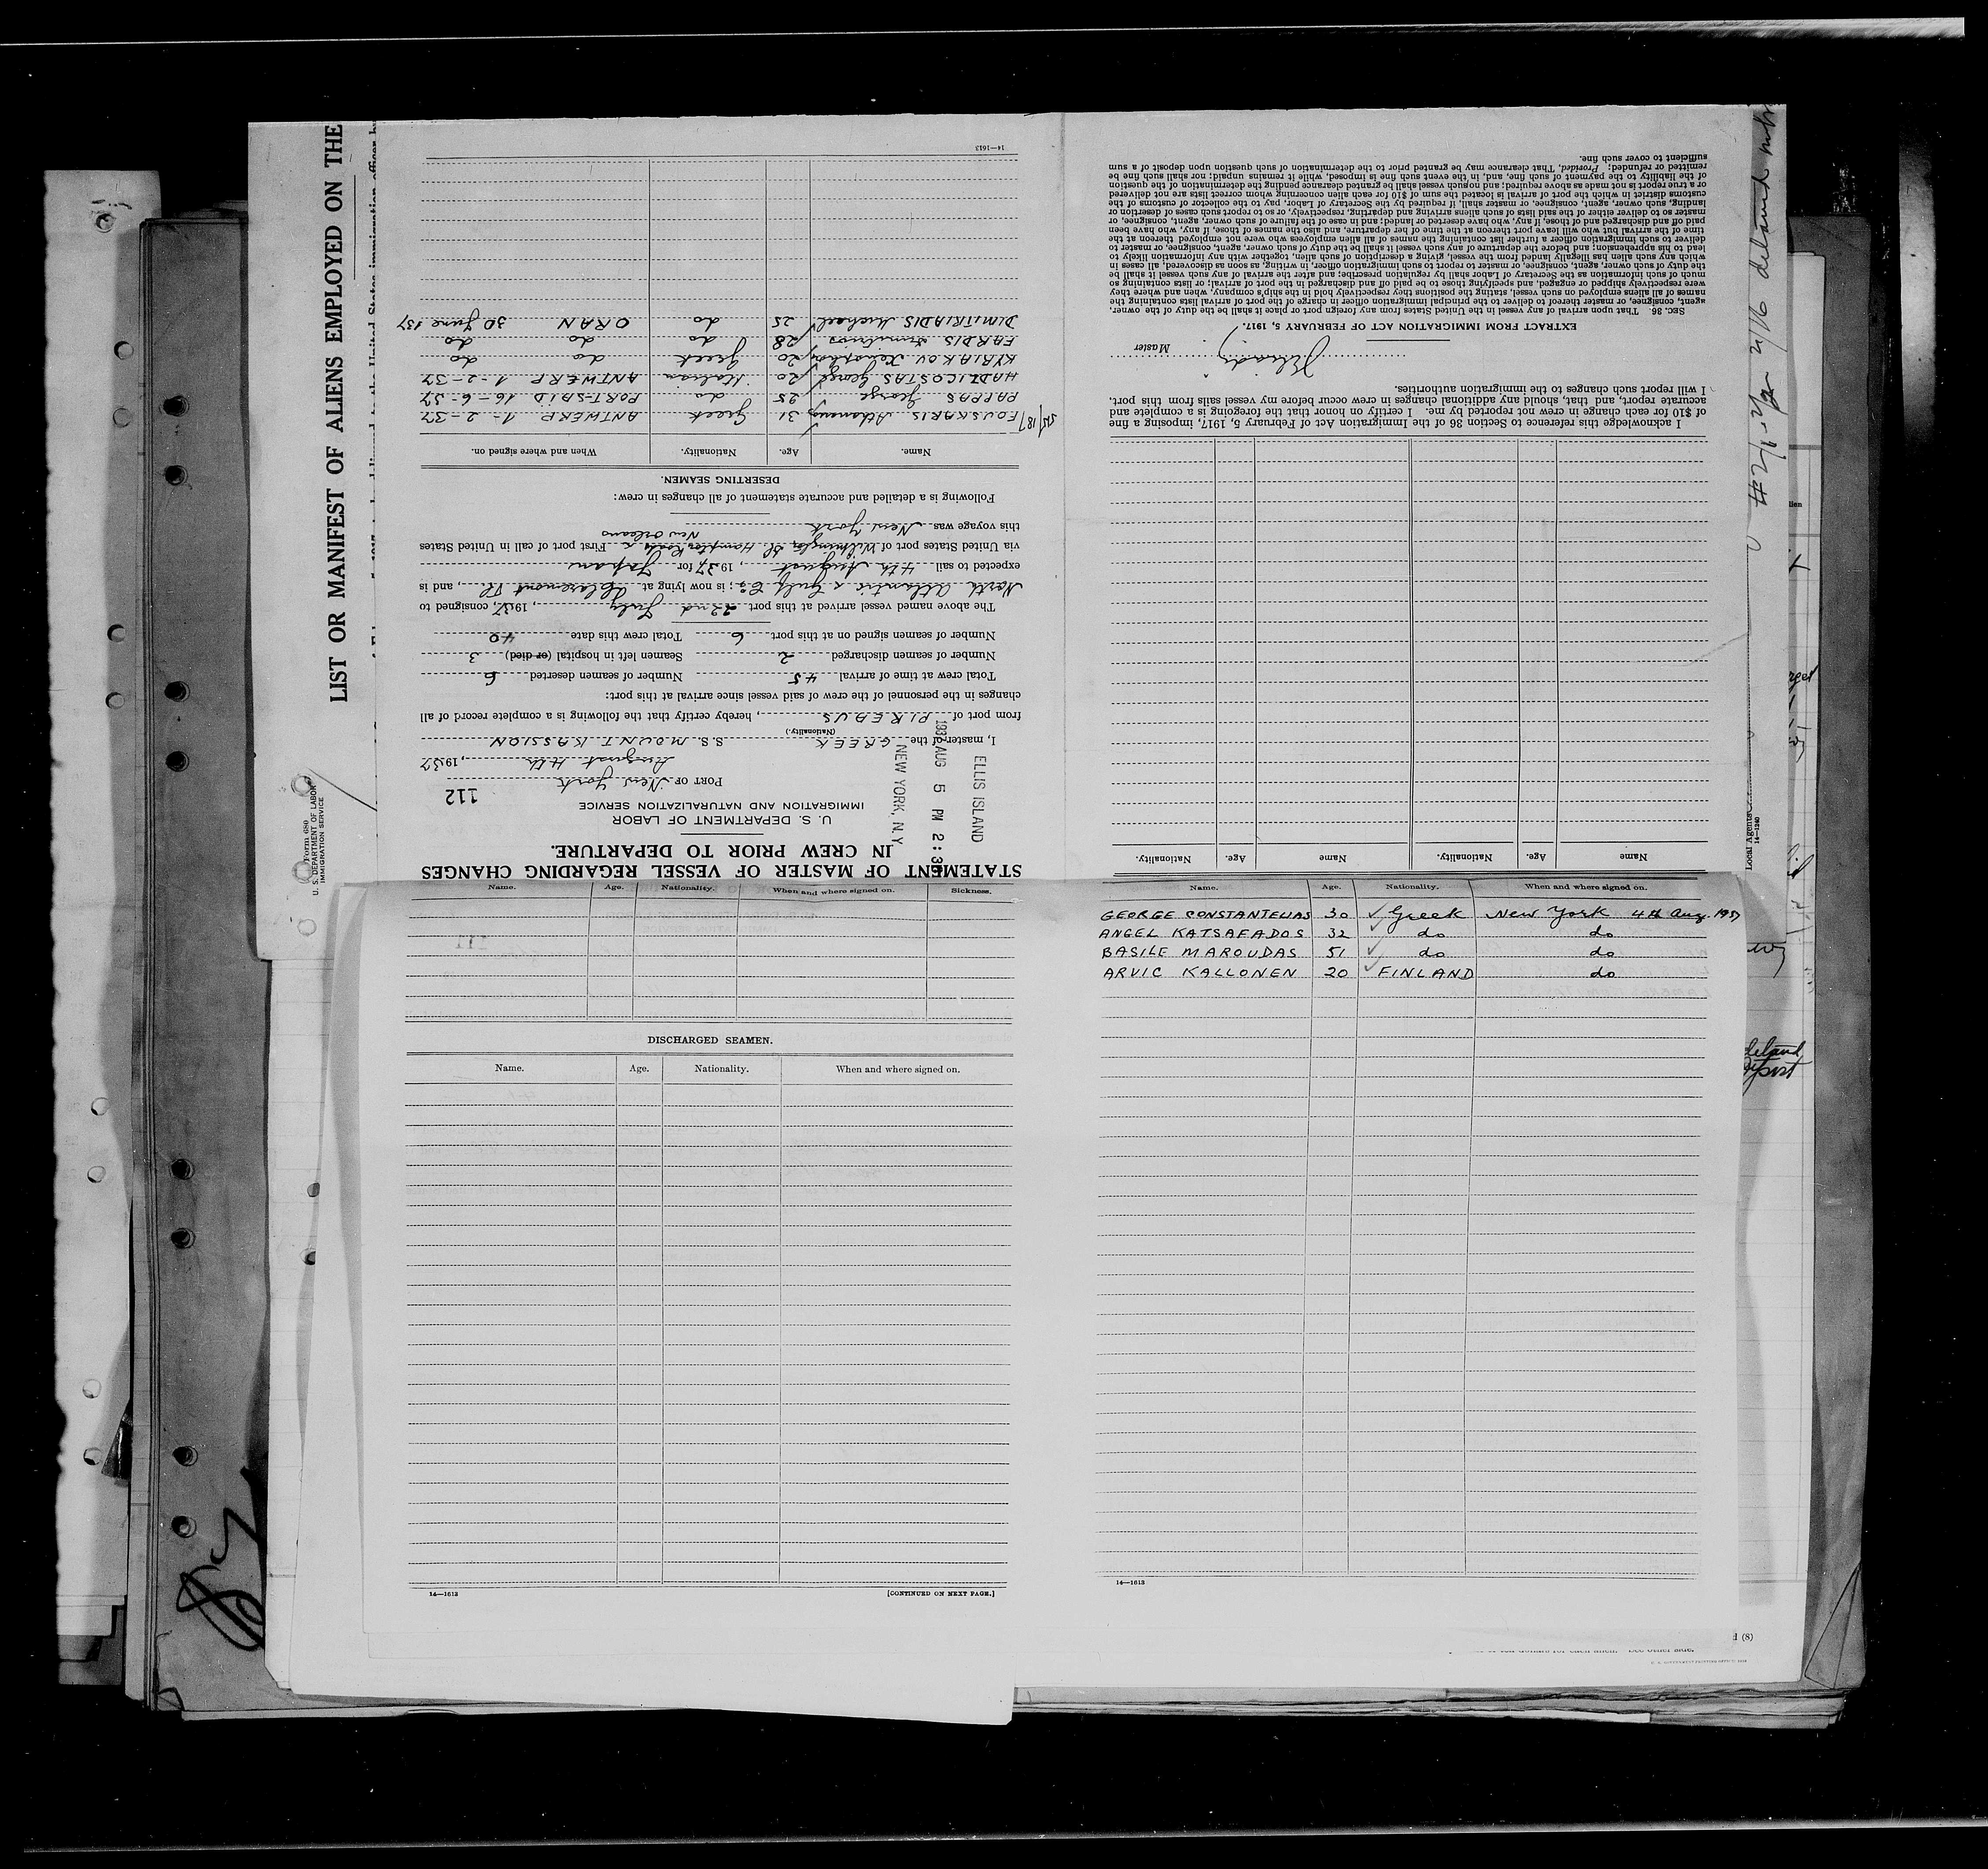 LIST OR MANIFEST OF ALIENS EMPLOYED ON THE
Form 680
U. S. DEPARTMENT OF LABOR
IMMIGRATION SERVICE
STATEMENT OF MASTER OF VESSEL REGARDING CHANGES
IN CREW PRIOR TO DEPARTURE.
U. S. DEPARTMENT OF LABOR
IMMIGRATION AND NATURALIZATION SERVICE
112
ELLIS ISLAND
1937 AUG 5 PM 2:3
NEW YORK, N. Y.
PORT OF New York
August 4th, 1937
I, master of the GREEK S. S. MOUNT KASSION
(Nationality.)
from port of PIREAUS, hereby certify that the following is a complete record of all
changes in the personnel of the crew of said vessel since arrival at this port:
Total crew at time of arrival 45 Number of seamen deserted 6
Number of seamen discharged 2 Seamen left in hospital (or died) 3
Number of seamen signed on at this port 6 Total crew this date 40
The above named vessel arrived at this port 22nd July, 1937, consigned to
North Atlantic & Gulf Co; is now lying at Claremont Tl., and is
expected to sail 4th August, 1937 for Japan
via United States port of Wilmington Hampton Roads & New Orleans First port of call in United States
this voyage was New York
Following is a detailed and accurate statement of all changes in crew:
DESERTING SEAMEN.
Name. Age. Nationality. When and where signed on.
FOUSKARIS Athanasios 31 Greek ANTWERP 1-2-37
PAPPAS George 25 do PORT-SAID 16-6-37
HADLICOSTAS George 20 Italian ANTWERP 1-2-37
KYRIAKOU 20 Greek do do
FARDIS Dimitrios 28 do do do
DIMITRIADIS Michael 25 do ORAN 30 June 137
14—1613
Name Age. Nationality. Name Age. Nationality.
I acknowledge this reference to Section 36 of the Immigration Act of February 5, 1917, imposing a fine
of $10 for each change in crew not reported by me. I certify on honor that the foregoing is a complete and
accurate report, and that, should any additional changes in crew occur before my vessel sails from this port,
I will report such changes to the immigration authorities.
Master
EXTRACT FROM IMMIGRATION ACT OF FEBRUARY 5, 1917.
SEC. 36. That upon arrival of any vessel in the United States from any foreign port or place it shall be the duty of the owner,
agent, consignee, or master thereof to deliver to the principal immigration officer in charge of the port of arrival lists containing the
names of all aliens employed on such vessel, stating the positions they respectively hold in the ship's company, when and where they
were respectively shipped or engaged, and specifying those to be paid off and discharged in the port of arrival; or lists containing so
much of such information as the Secretary of Labor shall by regulation prescribe; and after the arrival of any such vessel it shall be
the duty of such owner, agent, consignee, or master to report to such immigration officer, in writing, as soon as discovered, all cases in
which any such alien has illegally landed from the vessel, giving a description of such alien, together with any information likely to
lead to his apprehension; and before the departure of any such vessel it shall be the duty of such owner, agent, consignee, or master to
deliver to such immigration officer a further list containing the names of all alien employees who were not employed thereon at the
time of the arrival but who will leave port thereon at the time of her departure, and also the names of those, if any, who have been
paid off and discharged and of those, if any, who have deserted or landed; and in case of the failure of such owner, agent, consignee, or
master so to deliver either of the said lists of such aliens arriving and departing, respectively, or so to report such cases of desertion or
landing, such owner, agent, consignee, or master shall, if required by the Secretary of Labor, pay to the collector of customs of the
customs district in which the port of arrival is located the sum of $10 for each alien concerning whom correct lists are not delivered
or a true report is not made as above required; and no such vessel shall be granted clearance pending the determination of the question
of the liability to the payment of such fine, and, in the event such fine is imposed, while it remains unpaid; nor shall such fine be
remitted or refunded: Provided, That clearance may be granted prior to the determination of such question upon deposit of a sum
sufficient to cover such fine.
Name. Age. Nationality. When and where signed on. Sickness.
111
DISCHARGED SEAMEN.
Name. Age. Nationality. When and where signed on.
14—1613 [CONTINUED ON NEXT PAGE.]
Name. Age. Nationality. When and where signed on.
GEORGE CONSTANTELIAS 30 Greek New York 4th Aug. 1937
ANGEL KATSAFADOS 32 do do
BASILE MAROUDAS 51 do do
ARVIC KALLONEN 20 FINLAND do
14—1613
Local Agents
14—1240
d (8)